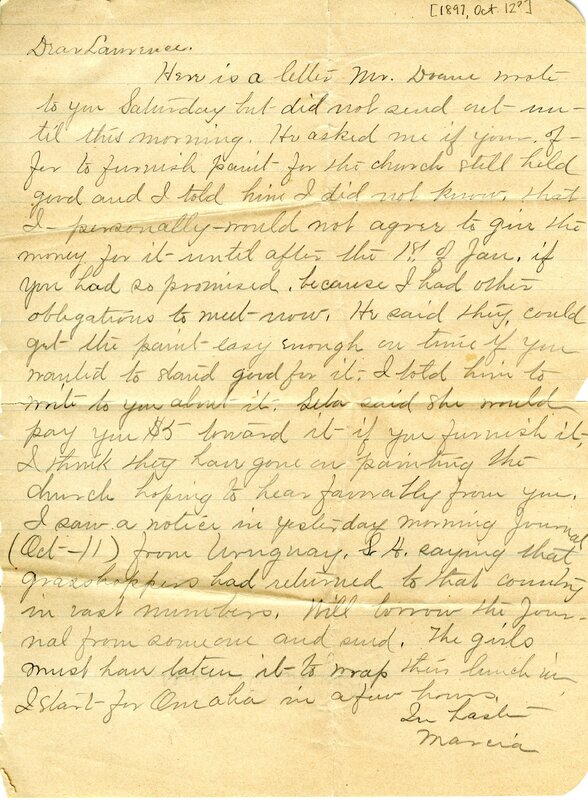 [1897, Oct. 12?]
Dear Lawrence.
Here is a letter Mr. Doane wrote
to you Saturday but did not send out un-
til this morning. He asked me if your of-
fer to furnish paint for the church still held
good and I told him I did not know, that
I personally would not agree to give the
money for it until after the 1st of Jan. if
you had so promised, because I had other
obligations to meet now. He said they could
get the paint easy enough on time if you
wanted to stand good for it. I told him to
write to you about it. Leba said she would
pay you $5 toward it if you furnish it,
I think they have gone on painting the
church hoping to hear favorably from you.
I saw a notice in yesterday morning Journal
(Oct-11) from Uruguay, S. A. saying that
grasshoppers had returned to that country
in vast numbers. Will borrow the Jour-
nal from someone and send. The girls
must have taken it to wrap their lunch in,
I start for Omaha in a few hours.
In haste
Marcia